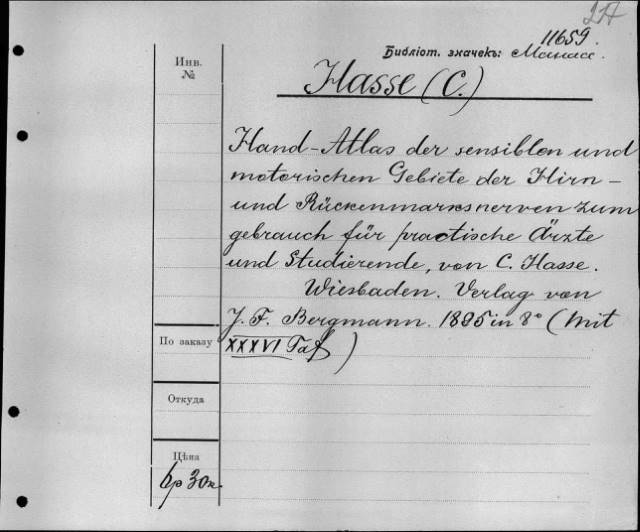 27
11659.
Библіот. значекъ:
Инв.
№
Hasse (C.)
Hand-Atlas der sensiblen und
motorischen Gebiete der Hirn-
und Rückenmarksnerven zum
gebrauch für practische Ärzte
und Studierende, von C. Hasse.
Wiesbaden. Verlag von
J. F. Bergmann. 1895 in 8° (Mit
XXXVI Taf)
По заказу
Откуда
Цѣна
6р 30к.